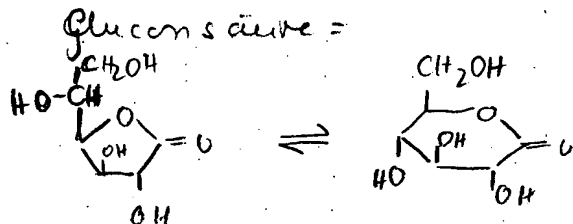 Gluconsäure =
CH2OH
HO-CH
O
OH
= O
OH
⇌
CH2OH
O
OH
HO
= O
OH